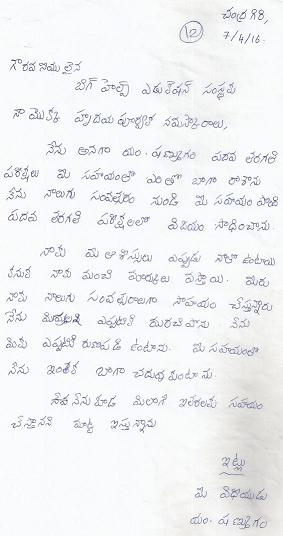 చంద్రగిరి,
(12)
7/4/16.
గౌరవనీయులైన
బిగ్ హెల్ప్ ఎడుకేషన్ సంస్థకు
నా యొక్క హృదయపూర్వక నమస్కారాలు,
నేను అనగా యం. షణ్ముగం పదవ తరగతి
పరీక్షలు మీ సహయంతో ఎంతో బాగా రాశాను
నేను నాలుగు సంవత్సరం నుండి మీ సహయం పొంది
పదవ తరగతి పరీక్షలలో విజయం సాధించాను.
నాకు మీ ఆశిస్సులు ఎప్పుడు నాతో ఉంటాయి
కనుక నాకు మంచి మార్కులు వస్తాయి. మీరు
నాకు నాలుగు సంవత్సరాలుగా సాహయం చేస్తున్నారు
నేను మిమ్మల్ని ఎప్పటికి మరచిపోను. నేను
మీకు ఎప్పటికి రుణపడి ఉంటాను. మీ సహయంతో
నేను ఇంకా బాగా చదువుకుంటాను.
నేను కూడ మీలాగే ఇతరులకు సహయం
చేస్తానని మాట ఇస్తున్నాను
ఇట్లు
మీ విధేయుడు
యం. షణ్ముగం